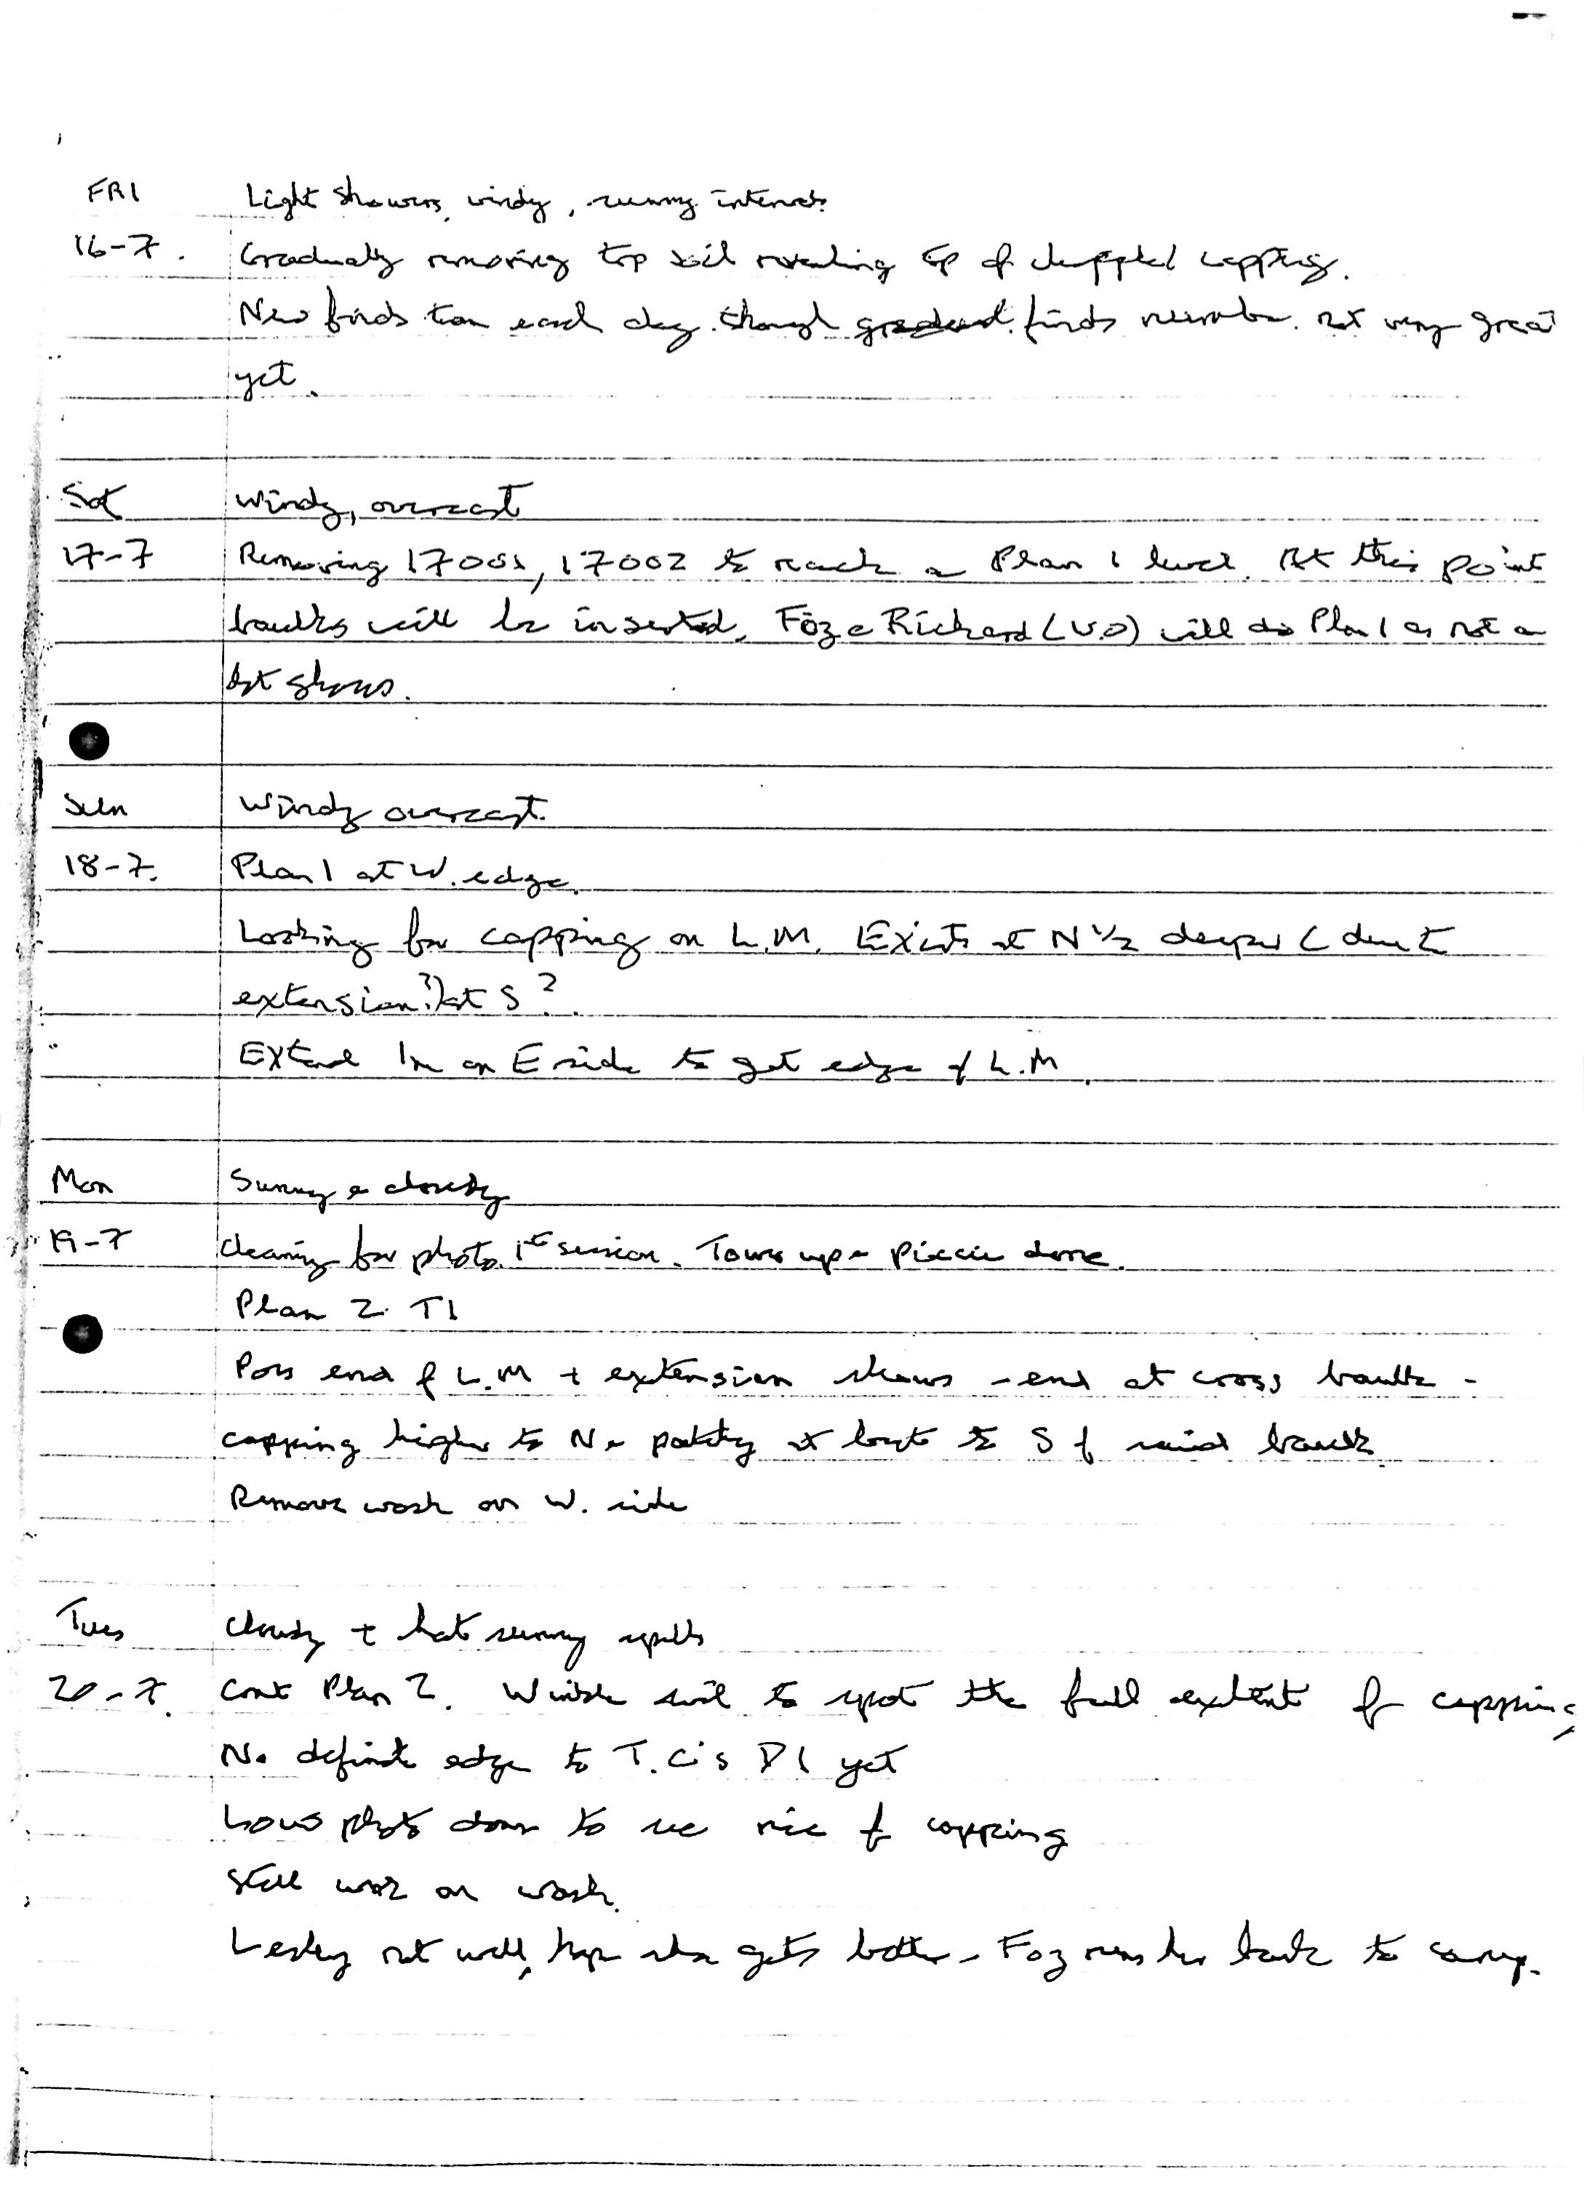 FRI Light showers, windy, sunny intervals
16-7. Gradually removing top soil revealing top of capping.
New finds team each day though finds number not very great
yet.
Sat Windy, overcast
17-7 Removing 17001, 17002 to reach a Plan 1 level. At this point
baulks will be inserted. Foz & Richard (V.O) will do Plan 1 as not a
lot shows.
Sun Windy overcast.
18-7. Plan 1 at W. edge.
Looking for capping on L.M. Exists at N 1/2 deeper (due to
extension?) at S?.
Extend 1m on E side to get edge of L.M.
Mon Sunny & cloudy
19-7 Cleaning for photo. 1st session. Tower up & piccie done.
Plan 2 T1
Poss end of L.M + extension shows - end at cross baulk -
capping higher to N & patchy at to S of said baulk
Remove wash on W. side
Tues Cloudy + hot sunny spells
20-7. Cont Plan 2. soil to spot the full extent of capping
No definite edge to T.C's D1 yet
down to see of capping
Still work on wash.
Lesley not well, hope she gets better - Foz runs her back to camp.